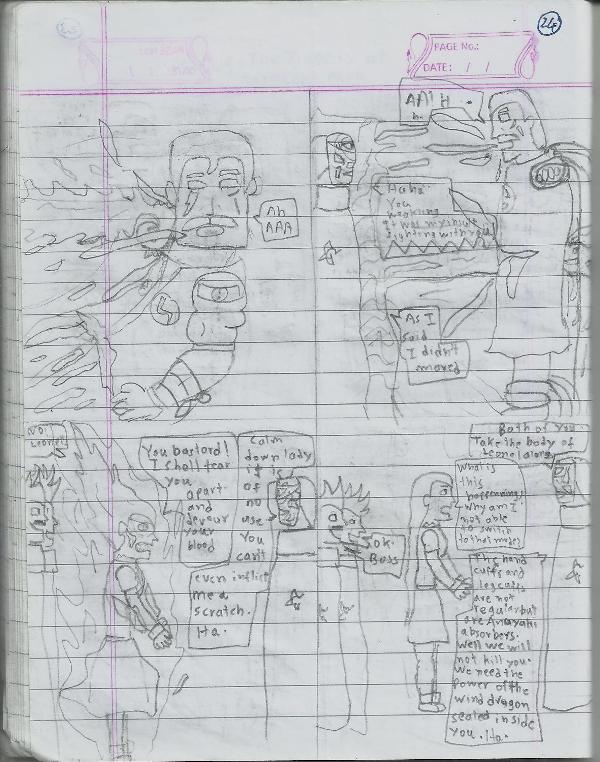 24
PAGE NO.:
DATE: / /
AAIH
Ah
AAA
Haha
You
weakling
it was my
fighting with you
As I
said
I didn't
moved
NO!
Leonel
You bastard!
I shall tear
you
apart
and
devour
your
blood
Calm
down lady
it is
of
no
use
You
can't
even inflict
me a
scratch.
Ha.
Both of you
Take the body of
Leonel along
ok.
Boss
What is
this
happening?
Why am I
not able
to switch
to that mode?
The hand
cuffs and
leg cuffs
are not
regular but
are
absorbers.
Well we will
not kill you.
We need the
power of the
wind dragon
sealed inside
you. Ha.